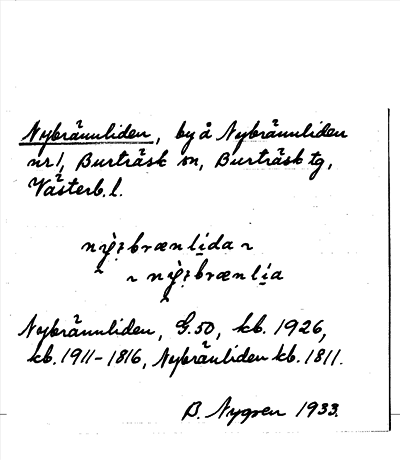 Nybrännliden, by å Nybrännliden
nr 1, Burträsk sn, Burträsk tg,
Västerb. l.
nỳ:brænlida ~
~ nỳ:brænlia
Nybrännliden, G.50, kb. 1926,
kb. 1911-1816, Nybränliden kb. 1811.
B. Nygren 1933.